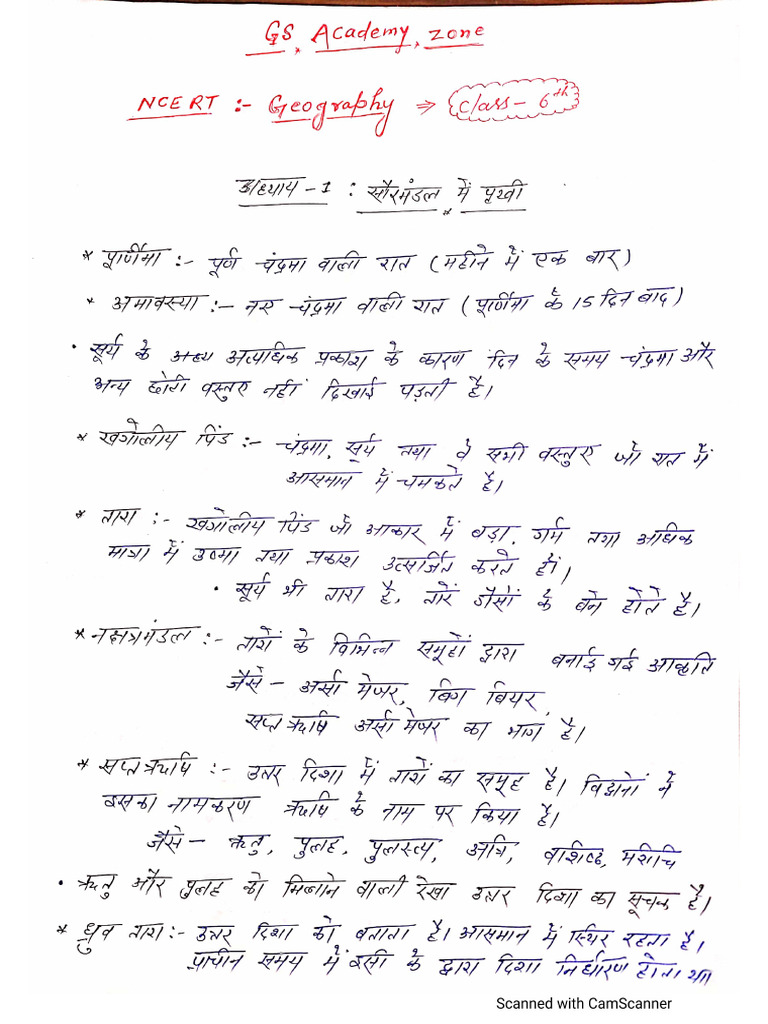 GS Academy zone
NCERT :- Geography ⇒ Class - 6th
अध्याय - 1 : सौरमंडल में पृथ्वी
* पूर्णिमा :- पूर्ण चंद्रमा वाली रात (महीने में एक बार)
* अमावस्या :- नए चंद्रमा वाली रात (पूर्णिमा के 15 दिन बाद)
• सूर्य के अत्याधिक प्रकाश के कारण दिन के समय चंद्रमा और
अन्य छोटी वस्तुए नहीं दिखाई पड़ती है।
* खगोलीय पिंड :- चंद्रमा, सूर्य तथा वे सभी वस्तुए जो रात में
आसमान में चमकते है।
* तारा :- खगोलीय पिंड जो आकार में बड़ा, गर्म तथा अधिक
मात्रा में उष्मा तथा प्रकाश उत्सर्जित करते हों।
• सूर्य भी तारा है, तारें गैसों के बने होते है।
* नक्षत्रमंडल :- तारों के विभिन्न समूहों द्वारा बनाई गई आकृति
जैसे - अर्सा मेजर, बिग बियर,
सप्तऋषि अर्सा मेजर का भाग है।
* सप्तऋषि :- उत्तर दिशा में तारों का समूह है। विद्वानों ने
इसका नामकरण ऋषि के नाम पर किया है।
जैसे - ऋतु, पुलह, पुलस्त्य, अत्रि, वाशिष्ठ, मरीचि
• ऋतु और पुलह को मिलाने वाली रेखा उत्तर दिशा का सूचक है।
* ध्रुव तारा :- उत्तर दिशा को बताता है। आसमान में स्थिर रहता है।
प्राचीन समय में इसी के द्वारा दिशा निर्धारण होता था
Scanned with CamScanner